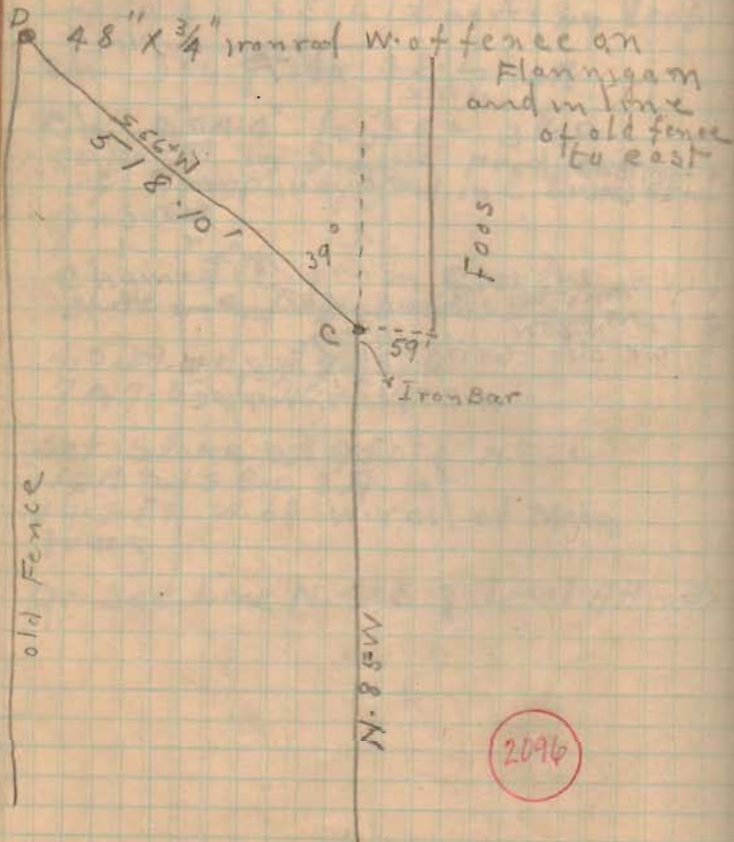 D
48" x 3/4" iron rod W. of fence on
Flannigam
and in line
of old fence
to east
518.10'
39°
Foos
C
59'
Iron Bar
old Fence
N. 85° W
2096